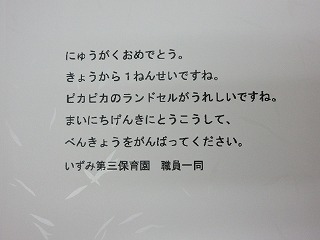 にゅうがくおめでとう。
きょうから１ねんせいですね。
ピカピカのランドセルがうれしいですね。
まいにちげんきにとうこうして、
べんきょうをがんばってください。
いずみ第三保育園　職員一同